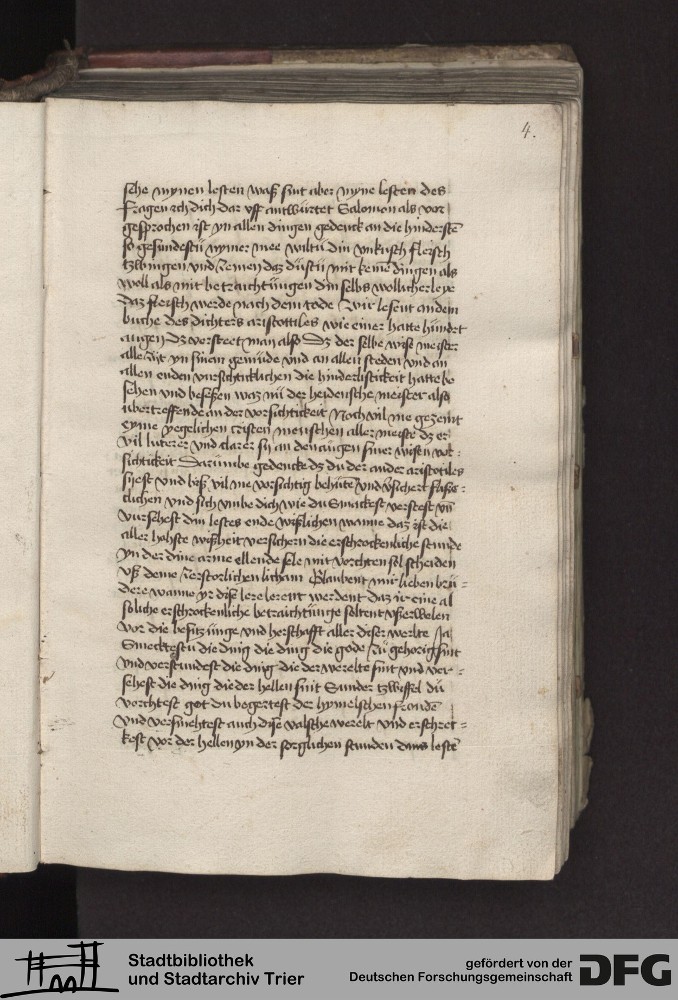 4.
sche mynen lesten waß sint aber myne lesten des
fragen ich dich dar vff antwürtet Salomon als vor
gesprochen ist yn allen dingen gedenck an die hinderstē
so gesundestu nymer mee wiltu din vnkusch fleisch
tzwingen vnd zemen daz dustu mit keinē dingen als
woll als mit betrachtungen din selbs wollicherleye
daz fleisch werde nach dem tode Wir lesent an dem
buche des dichters aristottiles wie einer hatte hundet
augen dz vorsteet man also dz der selbe wise meister
alle zijt yn sinem gemüde vnd an allen steden vnd an
allen enden vursichtiklichen die hinderlistickeit hatte be
sehen vnd beseßen waz nů der heidensche meister also
ubertreffende an der vorsichtickeit Noch vil me gezemt
eyme yegelichen cristen menschen aller meiste dz er
vil luterer vnd clarer sij an den augen siner wisen vor:
sichtickeit Darumbe gedencke dz du der ander aristotiles
sijest vnd biß vil me vorsichtig behüte vnd
clichen vnd sich vmbe dich wie du smackest verstest vn̄
vursehest din lestes ende wißlichen wanne daz ist die
aller hohste wißheit versichern die erschrockenliche stunde
yn der dine arme ellende sele mit vorchten sol scheiden
vß deme licham Glaubent mir lieben brü-
dere wanne yr diß lere lerent werdent daz ir eine al
soliche erschrockenliche betrachtunge soltent vßerwelen
vor die besitzunge vnd herschafft aller diser werlte Ja
Smecktestu die ding die ding die gode zů gehorig sint
vnd verstundest die ding die der werelte sint vnd ver:
sehest die ding die der hellen sint Sunder tzwiffel du
vorchtest got du begertest der hymelschen froude
vnd versmehtest auch dise valsche werelt vnd erschrec=
kest vor der hellen yn der sorglichen stunden dins lestē
Stadtbibliothek
und Stadtarchiv Trier
gefördert von der
Deutschen Forschungsgemeinschaft
DFG